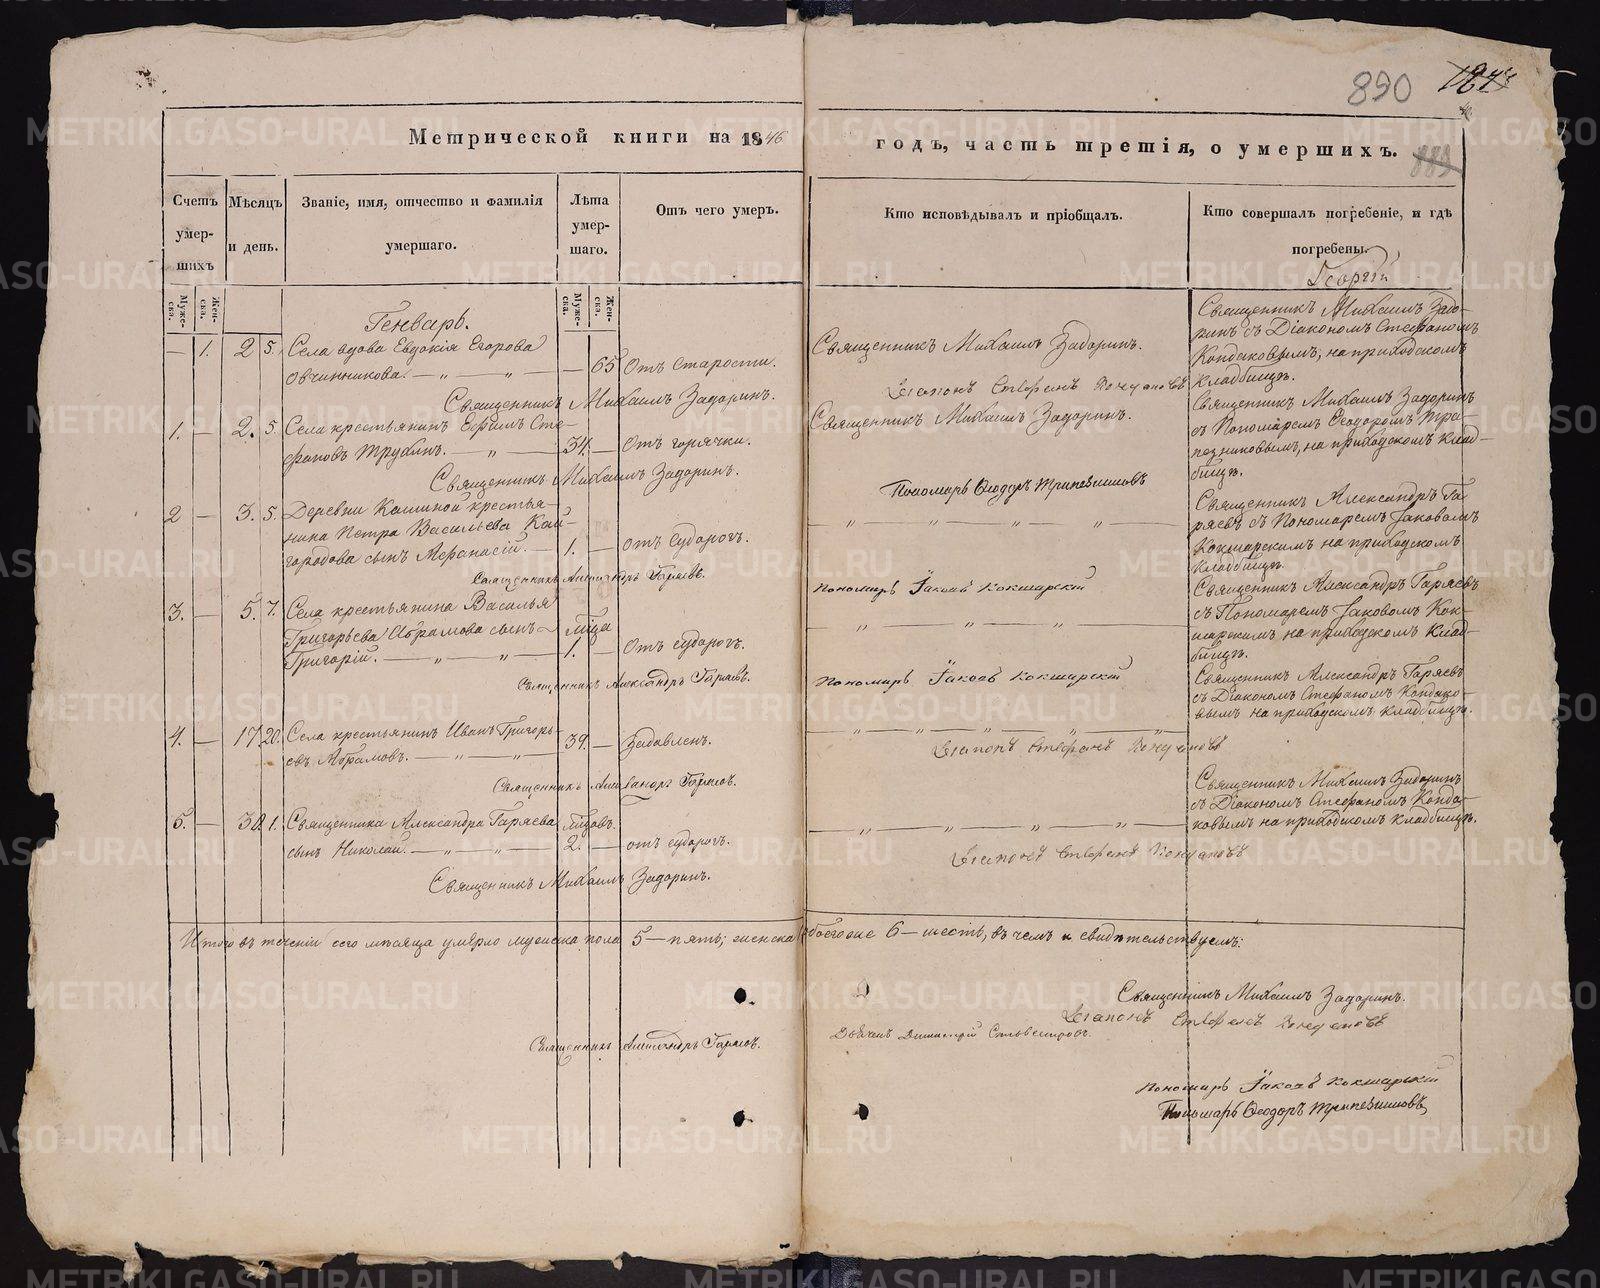 890
Метрической книги на 1846
годъ, часть третія, о умершихъ.
889
Счетъ умер-шихъ
Мѣсяцъ и день.
Званіе, имя, отчество и фамилія
умершаго.
Лѣта умер-шаго.
Отъ чего умеръ.
Кто исповѣдывалъ и пріобщалъ.
Кто совершалъ погребеніе, и гдѣ
погребены.
Муже-ска.
Жен-ска.
Муже-ска.
Жен-ска.
Генварь.
— 1. 2 5. Села вдова Евдокія Егорова
Овчинникова. — „ — „ — — 65 Отъ старости.
Священникъ Михаилъ Задоринъ.
Священникъ Михаилъ Задоринъ.
Діаконъ Стефанъ Кондаковъ
Священникъ Михаилъ Задо-
ринъ съ Діакономъ Стефаномъ
Кондаковымъ, на приходскомъ
кладбищѣ.
1. — 2. 5. Села крестьянинъ Ефимъ Сте-
фановъ Трубинъ. — „ — 34. — Отъ горячки.
Священникъ Михаилъ Задоринъ.
Священникъ Михаилъ Задоринъ.
Пономарь Ѳеодоръ Трапезниковъ
Священникъ Михаилъ Задоринъ
съ Пономаремъ Ѳеодоромъ Тра-
пезниковымъ, на приходскомъ клад-
бищѣ.
2 — 3. 5. Деревни крестья-
нина Петра Васильева Кай-
городова сынъ Аѳанасій. — 1. — Отъ судорогъ.
Священникъ Александръ Гаряевъ.
— „ — „ — „ — „ —
Пономарь Іаковъ Кокшарскій
Священникъ Александръ Га-
ряевъ съ Пономаремъ Іаковомъ
Кокшарскимъ на приходскомъ
кладбищѣ.
3. — 5. 7. Села крестьянина Василья
Григорьева Абрамова сынъ
Григорій. — „ — „ — 1. — Отъ судорогъ.
Священникъ Александръ Гаряевъ.
— „ — „ — „ —
Пономарь Іаковъ Кокшарскій
Священникъ Александръ Гаряевъ
съ Пономаремъ Іаковомъ Кок-
шарскимъ на приходскомъ клад-
бищѣ.
4. — 17 20. Села крестьянинъ Иванъ Григорь-
евъ Абрамовъ. — „ — „ — 39. — Задавленъ.
Священникъ Александръ Гаряевъ.
— „ — „ — „ — „ —
Діаконъ Стефанъ Кондаковъ
Священникъ Александръ Гаряевъ
съ Діакономъ Стефаномъ Кондако-
вымъ на приходскомъ кладбищѣ.
5. — 30. 1. Священника Александра Гаряева
сынъ Николай. — „ — „ — 2. — отъ судорогъ.
Священникъ Михаилъ Задоринъ.
— „ — „ — „ — „ —
Діаконъ Стефанъ Кондаковъ
Священникъ Михаилъ Задоринъ
съ Діакономъ Стефаномъ Конда-
ковымъ на приходскомъ кладбищѣ.
Итого въ теченіи сего мѣсяца умерло мужеска пола 5 — пять; женска обоего 6 — шесть, въ чемъ и свидѣтельствуемъ:
Священникъ Михаилъ Задоринъ.
Діаконъ Стефанъ Кондаковъ
Священникъ Александръ Гаряевъ.
Дьячекъ Димитрій
Пономарь Іаковъ Кокшарскій
Пономарь Ѳеодоръ Трапезниковъ
METRIKI.GASO-URAL.RU